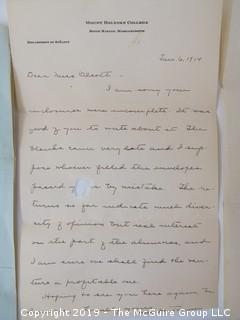 MOUNT HOLYOKE COLLEGE
SOUTH HADLEY, MASSACHUSETTS
DEPARTMENT OF BOTANY
Jan. 6, 1914
Dear Miss Olcott -
I am sorry your
enclosures were incomplete. It was
good of you to write about it. The
blanks came very late and I sup-
pose whoever filled the envelopes
passed by mistake. The re-
turns so far indicate much diver-
sity of opinion but real interest
on the part of the alumnae, and
I am sure we shall find the ven-
ture a profitable one.
Hoping to see you here again
Copyright 2019 - The McGuire Group LLC